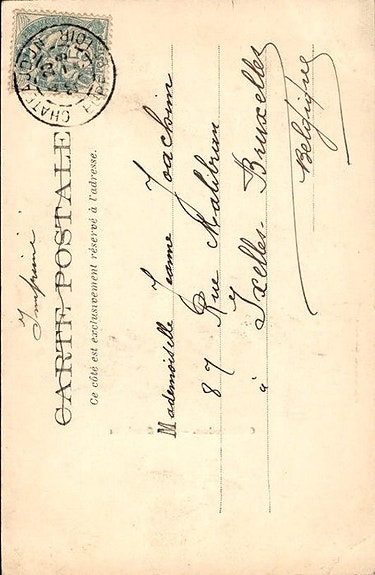 CHATEAUDUN
EURE-ET-LOIR
Imprimé
CARTE POSTALE
Ce côté est exclusivement réservé à l'adresse.
Mademoiselle Jeanne Joachim
87 Rue Malibran
à Ixelles-Bruxelles
Belgique